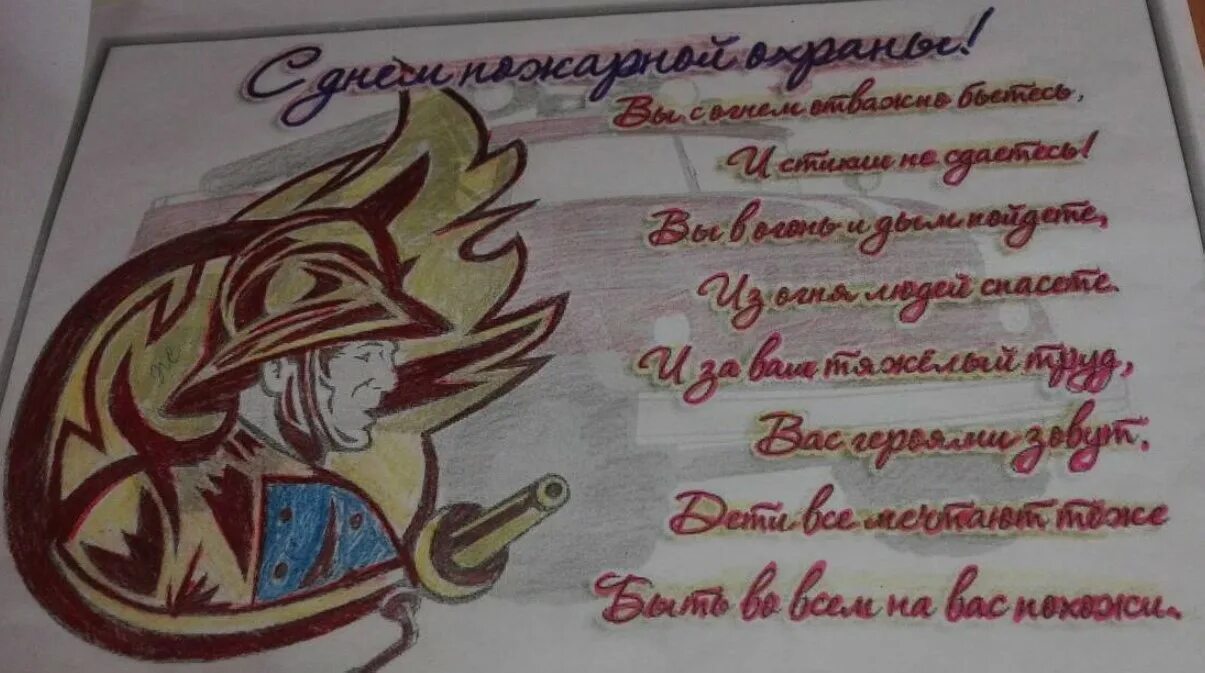 С днём пожарной охраны!
Вы с огнем отважно бьетесь,
И стихии не сдаетесь!
Вы в огонь и дым пойдете,
Из огня людей спасете.
И за ваш тяжёлый труд,
Вас героями зовут.
Дети все мечтают тоже
Быть во всем на вас похожи.